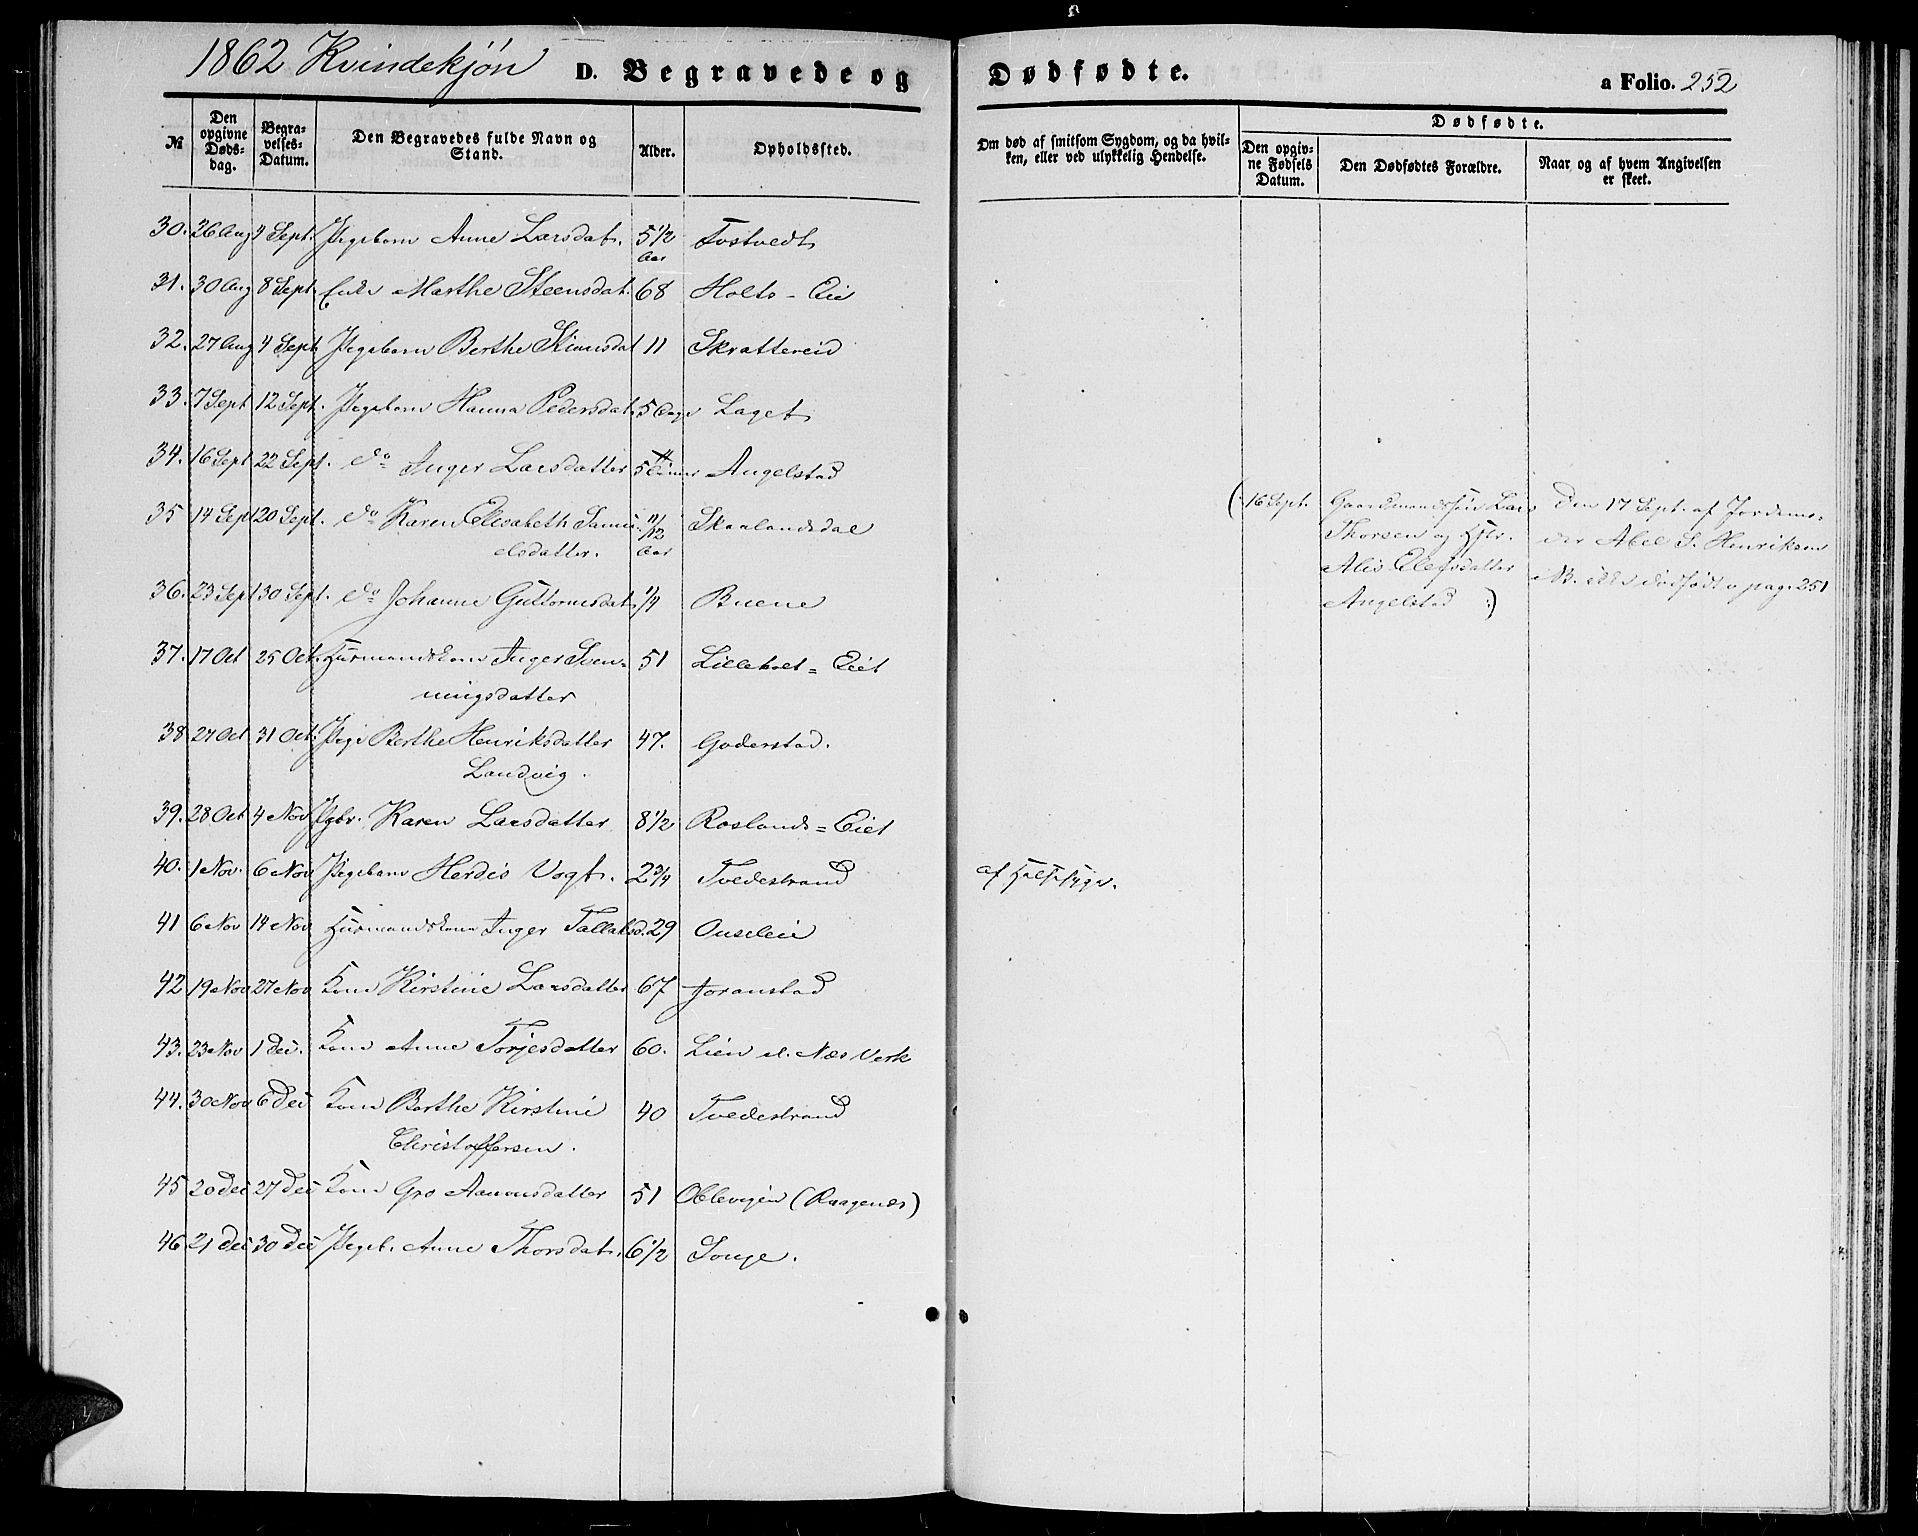 1862 Kvindekjøn D. Begravede og Dødfødte. a Folio. 252
№
Den opgivne Døds-dag.
Begra-velses-Datum.
Den Begravedes fulde Navn og Stand.
Alder.
Opholdssted.
Om død af smitsom Sygdom, og da hvil-ken, eller ved ulykkelig Hendelse.
Dødfødte.
Den opgiv-ne Fødsels Datum.
Den Dødfødtes Forældre.
Naar og af hvem Angivelsen er skeet.
30. 26 Aug 4 Sept. Pigebarn Anne Larsdat. 5 1/2 Aar Tostvedt
31. 30 Aug 8 Sept. Enke Marthe Steensdat. 68 Holts-Eie
32. 27 Aug 4 Sept. Pigebarn Berthe 11 Skrattereid
33. 7 Sept 12 Sept. Pigebarn Hanna Pedersdat. 5 Dage Laget
34. 16 Sept 22 Sept. do Inger Larsdatter 5 Angelstad
35 14 Sept 20 Sept. do Karen Elisabeth Samu-
elsdatter. 11/12 Aar Skaalandsdal
(: 16 Sept. Gaardmandsfolk Lars
Thorsen og Hstr.
Alis Olefsdatter
Angelstad :)
Den 17 Sept. af Jordemo-
der Abel S. Henriksen
NB. ikke dødfødt v pag. 251
36. 23 Sept 30 Sept. do Johanne Guttormsdat. 1/4 Buene
37. 17 Oct 25 Oct. Huusmandskone Inger Sven-
ningsdatter 51 Lilleholt=Eiet
38 27 Oct 31 Oct. Pige Berthe Henriksdatter
Landvig. 47. Goderstad.
39. 28 Oct 4 Nov Pgbr. Karen Larsdatter 8 1/2 Roslands=Eiet
40. 1 Nov. 6 Nov Pigebarn Herdis Vogt. 2 3/4 Tvedestrand af Halssyge.
41 6 Nov 14 Nov Huusmandskone Inger Tallaksd. 29 Ouseleie
42 19 Nov 27 Nov Kone Kirstine Larsdatter 67 Joranstad
43. 23 Nov 1 Dec. Kone Anne Torjesdatter 60. Lien v. Næs Verk
44. 30 Nov 6 Dec Kone Berthe Kirstine
Christoffersen. 40 Tvedestrand
45 20 Dec 27 Dec Kone Gro Aanonsdatter 51 Oblevejen (Raagenes)
46 21 Dec 30 Dec Pigeb. Anne Thorsdat. 6 1/2 Songe.